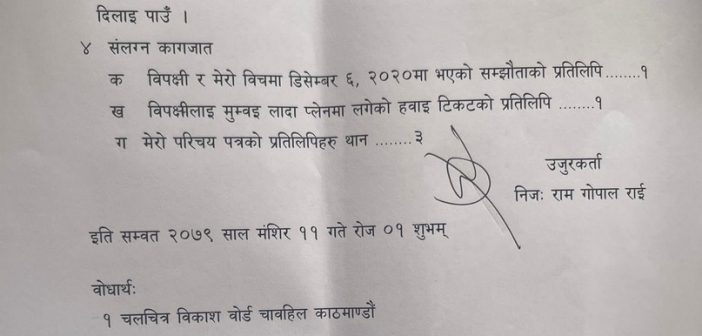 दिलाइ पाउँ ।
४ संलग्न कागजात
क विपक्षी र मेरो विचमा डिसेम्बर ६, २०२०मा भएको सम्झौताको प्रतिलिपि ........१
ख विपक्षीलाइ मुम्वइ लादा प्लेनमा लगेको हवाइ टिकटको प्रतिलिपि ........१
ग मेरो परिचय पत्रको प्रतिलिपिहरु थान ........३
उजुरकर्ता
निजः राम गोपाल राई
इति सम्वत २०७९ साल मंशिर ११ गते रोज ०१ शुभम्
वोधार्थः
१ चलचित्र विकाश वोर्ड चावहिल काठमाण्डौं